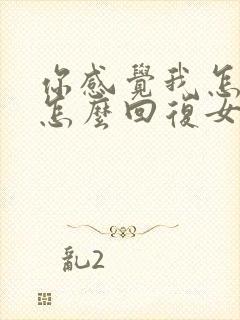 你感覺我怎
怎麼回復女
亂2